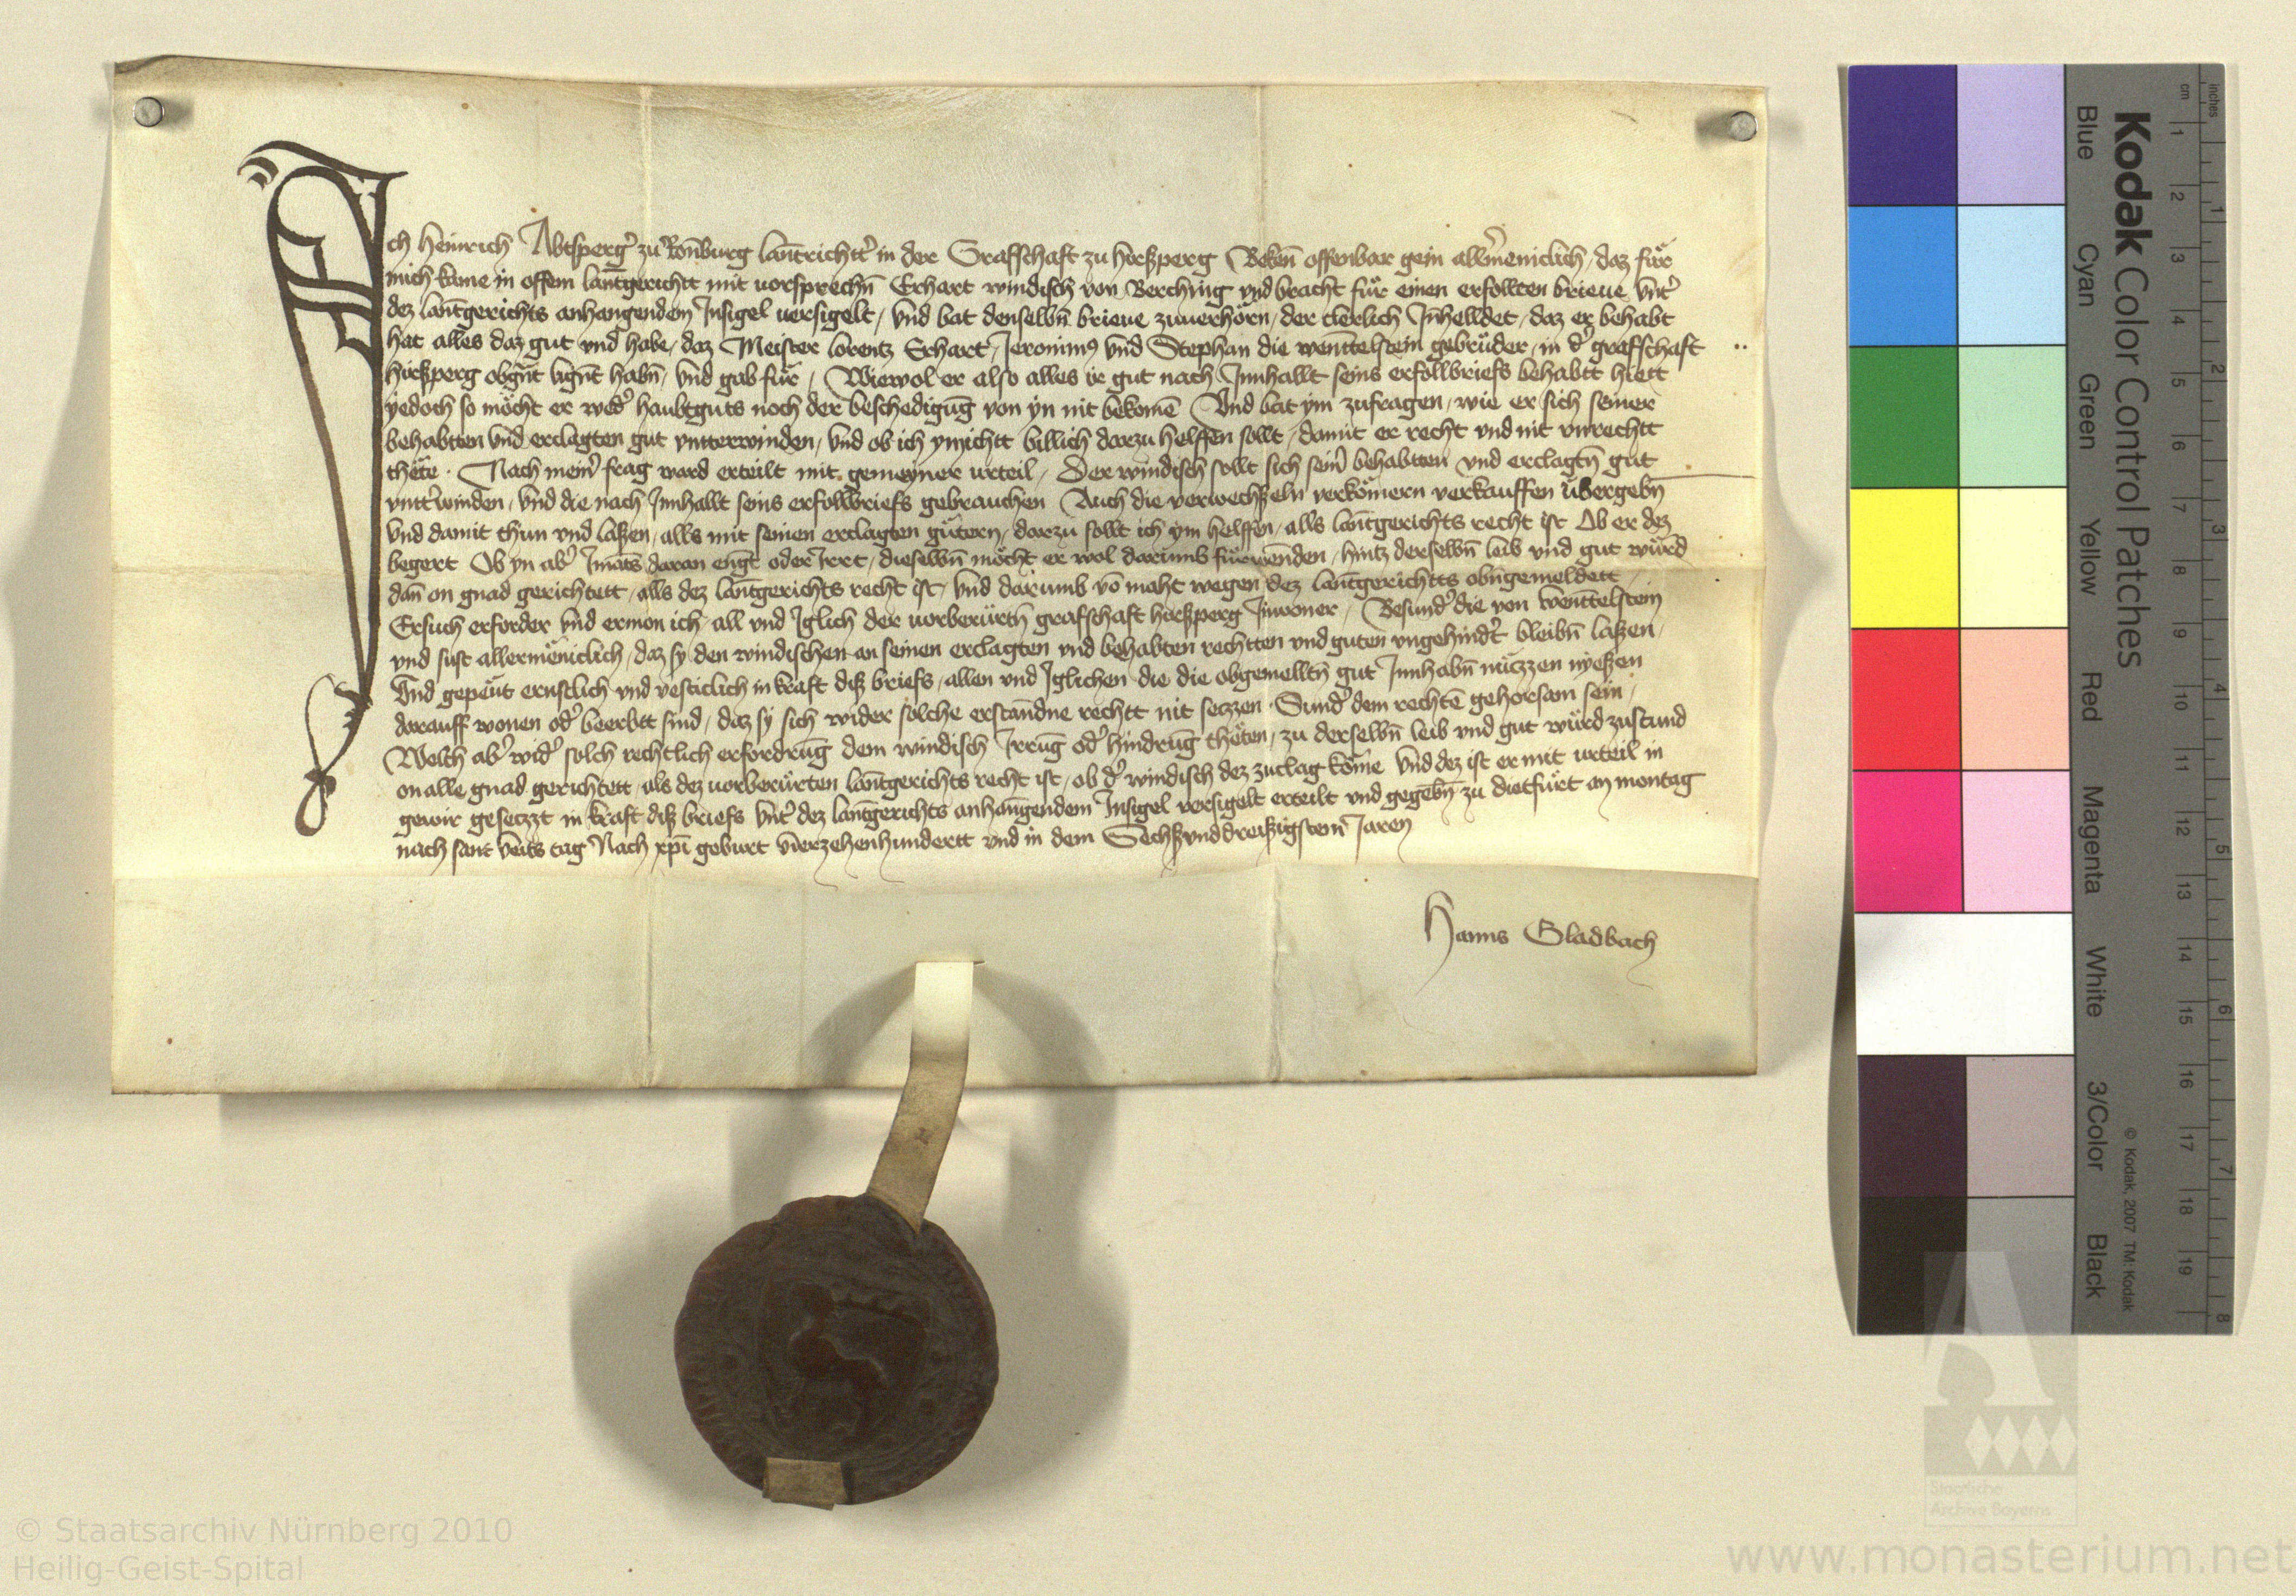 Ich Heinrich Abtsperg̉ zu Ron̄burg lan̄trichtt̉ in der Graffschaft zu hirßperg Beken̄ offenbar gein allm̉eniclich, daz für
mich kame in offem lan̄tgerichtt mit uorsprechn̄ Erhart windisch von Berching vnd bracht für einen erfollten brieue vnt̉
dez lan̄tgerichts anhangendem Insigel uersigelt, vnd bat denselbn̄ brieue zuuerhörn, der clerlich Inhelldet, daz er behabt
hat alles daz gut vnd habe, daz Meister lorentz Erhart, Jeronimꝰ vnd Stephan die wenttelstein gebrüder, in d̉ grafschaft
hirßperg habn̄, vnd gab für, Wiewol er also alles ir gut nach Innhallt seins erfollbriefs behabtt hiett
yedoch so möcht er wed̉ haubtguts noch der beschedigūg von yn nit bekomē Vnd bat ym zufragen, wie er sich seiner
behabtten vnd erclagten gut vntterwinden, vnd ob ich ymichtt billich darzu helffen sollt, damit er recht vnd nit vnrechtt
thëte. Nach mein̉ frag ward erteilt mit gemeyner urteil, Der windisch sollt sich sein̉ behabtten vnd erclagtn̄ gut
vntt̉winden, vnd die nach Innhallt seins erfollbriefs gebrauchen Auch die verwechßeln verkömern verkauffen übergebn̄
vnd damit thun vnd laßen, alls mit seinen erclagten gütern, darzu sollt ich ym helffen, alls lan̄tgerichts recht ist Ob er dez
begert Ob yn ab̉ Imāts daran engt oder Irret, dieselbn̄ möcht er wol darumb fürwenden, hintz derselbn̄ leib vnd gut würd
dan̄ on gnad gerichtett, alls dez lan̄tgerichts recht ist, vnd darumb vō maht wegen dez lan̄tgerichtts obn̄gemeldett,
Ersuch erforder vnd ermon ich, all vnd Iglich der uorberürtn̄ grafschaft hirßperg Inwoner, Besund̉ die von wenttelstein
vnd sust allermëniclich, daz sy den windischen an seinen erclagten vnd behabten rechtten vnd guten vngehindt̉ bleibn̄ laßen,
Vnd gepeüt ernstlich vnd vesticlich in kraft diß briefs, allen vnd Iglichen die die obgemelltn̄ gut Innhabn̄ nützzen nyeßen
darauff wonen od̉ beerbtt sind, daz sy sich wider solche erstandne rechtt nit sezzen. Sund̉ dem rechtē gehorsam sein,
Welch ab̉ wid̉ solch rechtlich erfordrūg dem windisch Irrūg od̉ hindrūg thëten, zu derselbn̄ leib vnd gut würd zustund
on alle gnad gerichtett, als dez uorberürten lan̄tgerichts recht ist, ob d̉ windisch dez zuclag köme vnd dez ist er mit urteil in
gewir gesetzzt in kraft diß briefs vnt̉ dez lan̄tgerichts anhangendem Insigel versigelt erteilt vnd gegebn̄ zu dietfürt an montag
nach sant veits tag Nach xp̄i geburt vierzehenhundertt vnd in dem Sechßvnddreißigstem Jaren
Hanns Gladbach
Kodak Color Control Patches
Blue Cyan Green Yellow Red Magenta White 3/Color Black
© Kodak, 2007 TM: Kodak
inches 1 2 3 4 5 6 7 8
cm 1 2 3 4 5 6 7 8 9 10 11 12 13 14 15 16 17 18 19
Staatliche
Archive Bayerns
© Staatsarchiv Nürnberg 2010
Heilig-Geist-Spital
www.monasterium.net